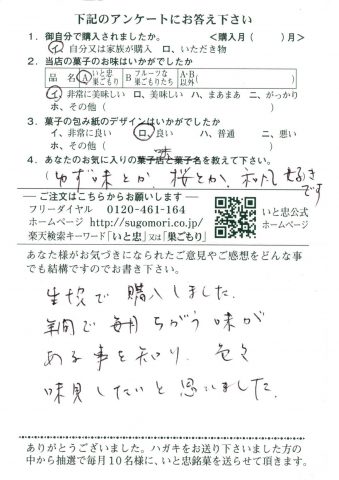 下記のアンケートにお答え下さい
1．御自分で購入されましたか。　＜購入月（　　）月＞
イ、自分又は家族が購入　ロ、いただき物
2．当店の菓子のお味はいかがでしたか
品　名　A いと忠巣ごもり　B フルーツな巣ごもりたち　A・B以外（　　）
イ、非常に美味しい　ロ、美味しい　ハ、まあまあ　ニ、がっかり
ホ、その他（　　）
3．菓子の包み紙のデザインはいかがでしたか
イ、非常に良い　ロ、良い　ハ、普通　ニ、悪い
ホ、その他（　　）
味
4．あなたのお気に入りの菓子店と菓子名を教えて下さい。
（ゆず味とか、桜とか、和風好きです
― ご注文はこちらからお願いします ―
フリーダイヤル　0120-461-164
ホームページ　http://sugomori.co.jp/
楽天検索キーワード「いと忠」又は「巣ごもり」
いと忠公式
ホームページ
あなた様がお気づきになられたご意見やご感想をどんな事
でも結構ですのでお書き下さい。
生協で購入しました。
年間で毎月ちがう味が
ある事を知り、色々
味見したいと思いました。
ありがとうございました。ハガキをお送り下さいました方の
中から抽選で毎月10名様に、いと忠銘菓を送らせて頂きます。